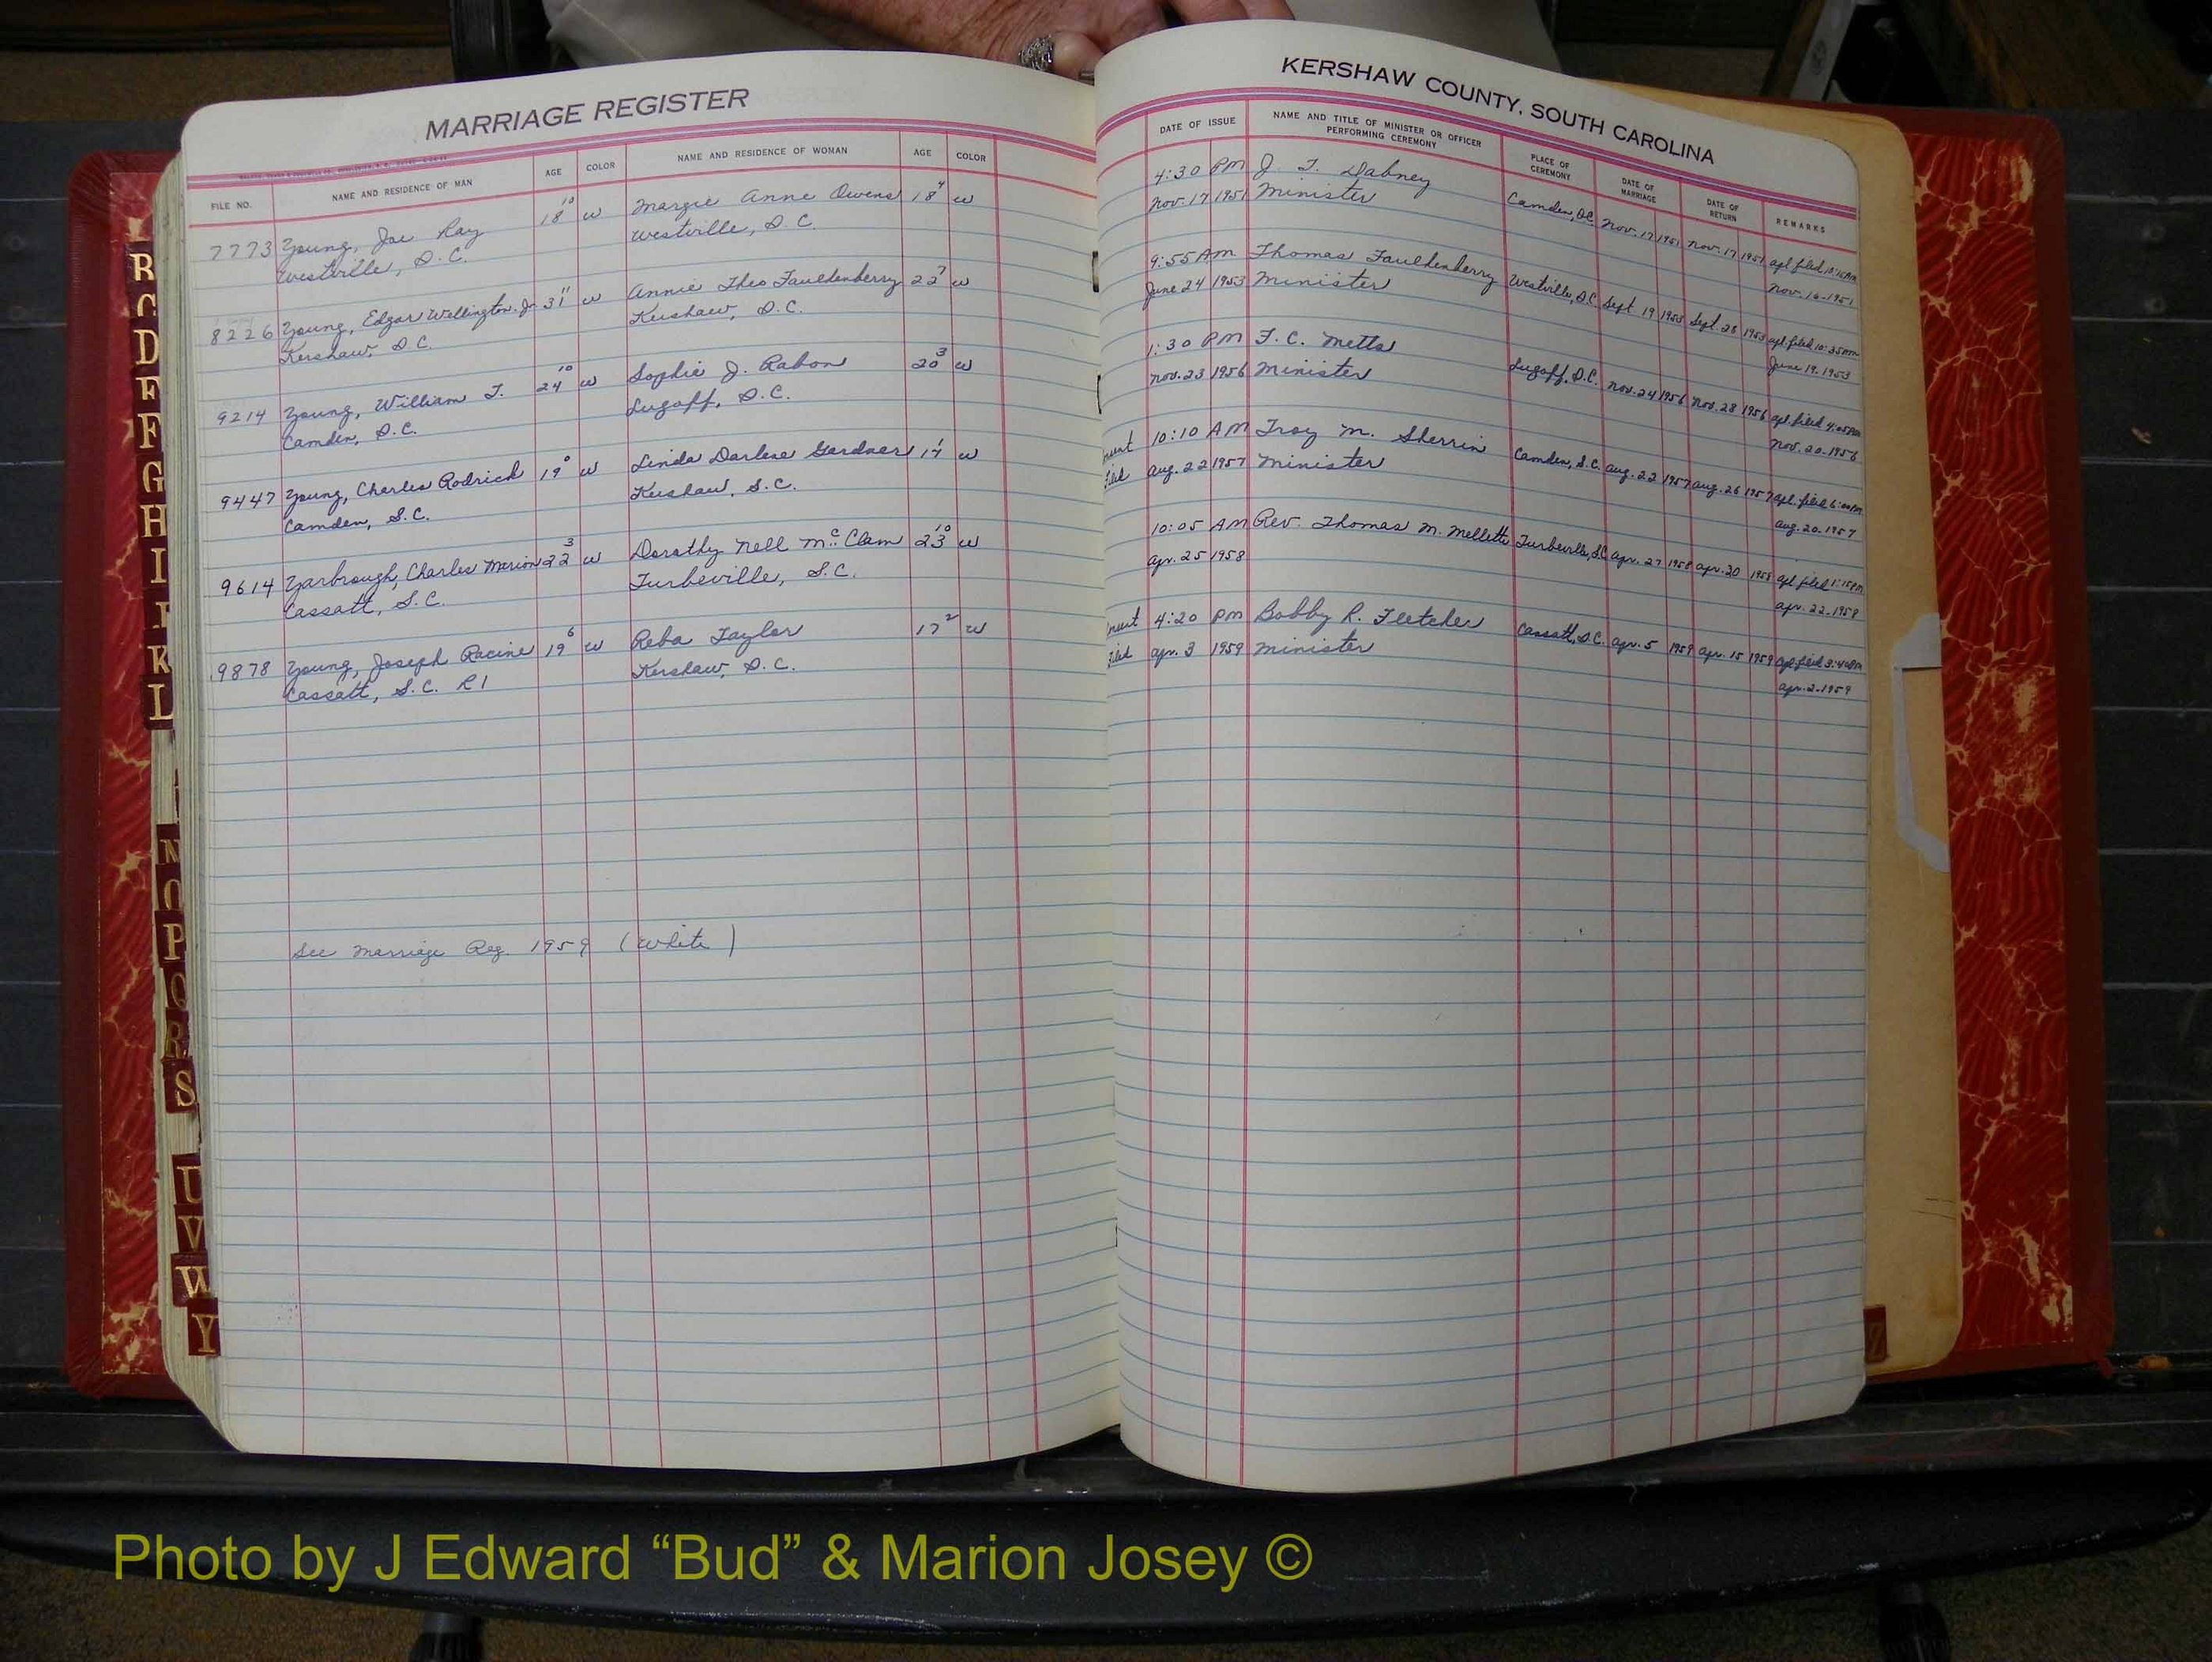 MARRIAGE REGISTER
FILE NO. NAME AND RESIDENCE OF MAN AGE COLOR NAME AND RESIDENCE OF WOMAN AGE COLOR
7773 Young, Joe Ray 18 10 w Margie Anne Owens 18 4 w
Westville, S.C. Westville, S.C.
8226 Young, Edgar Wellington Jr. 31 11 w Annie Theo Faulkenberry 22 7 w
Kershaw, S.C. Kershaw, S.C.
9214 Young, William T. 24 10 w Sophie J. Rabon 20 3 w
Camden, S.C. Lugoff, S.C.
9447 Young, Charles Rodrick 19 0 w Linda Darlese Gardner w
Camden, S.C. Kershaw, S.C.
9614 Yarbrough, Charles Marion 22 3 w Dorothy Nell McClam 23 10 w
Cassatt, S.C. Turbeville, S.C.
9878 Young, Joseph Racine 19 6 w Reba Taylor 17 2 w
Cassatt, S.C. R1 Kershaw, S.C.
See Marriage Reg. 1959 (White)
KERSHAW COUNTY, SOUTH CAROLINA
DATE OF ISSUE NAME AND TITLE OF MINISTER OR OFFICER PERFORMING CEREMONY PLACE OF CEREMONY DATE OF MARRIAGE DATE OF RETURN REMARKS
4:30 PM J. T. Dabney
Nov. 17 1951 Minister Camden, S.C. Nov. 17 1951 Nov. 17 1951 apl filed 10:15 AM
Nov. 16-1951
9:55 AM Thomas Faulkenberry
June 24 1953 Minister Westville, S.C. Sept 19 1953 Sept. 28 1953 apl. filed 10:35 AM
June 19. 1953
1:30 PM T. C. Metts
Nov. 23 1956 Minister Lugoff, S.C. Nov. 24 1956 Nov. 28 1956 apl. filed 4:05 PM
Nov. 20-1956
10:10 AM Troy M. Sherrin
Filed Aug. 22 1957 Minister Camden, S.C. Aug. 22 1957 Aug. 26 1957 apl. filed
Aug. 20-1957
10:05 AM Rev. Thomas M. Mellette Turbeville, S.C. Apr. 27 1958 Apr. 30 1958 apl filed 1:15 PM
Apr. 25 1958 Apr. 22-1958
4:20 PM Bobby R. Fletcher Cassatt, S.C. Apr. 5 1959 Apr. 15 1959 apl filed 3:40 PM
Filed Apr. 3 1959 Minister Apr. 2-1959
R
G
D
E
F
G
H
I
K
L
N
O
P
Q
R
S
U
V
W
Y
Z
Photo by J Edward “Bud” & Marion Josey ©